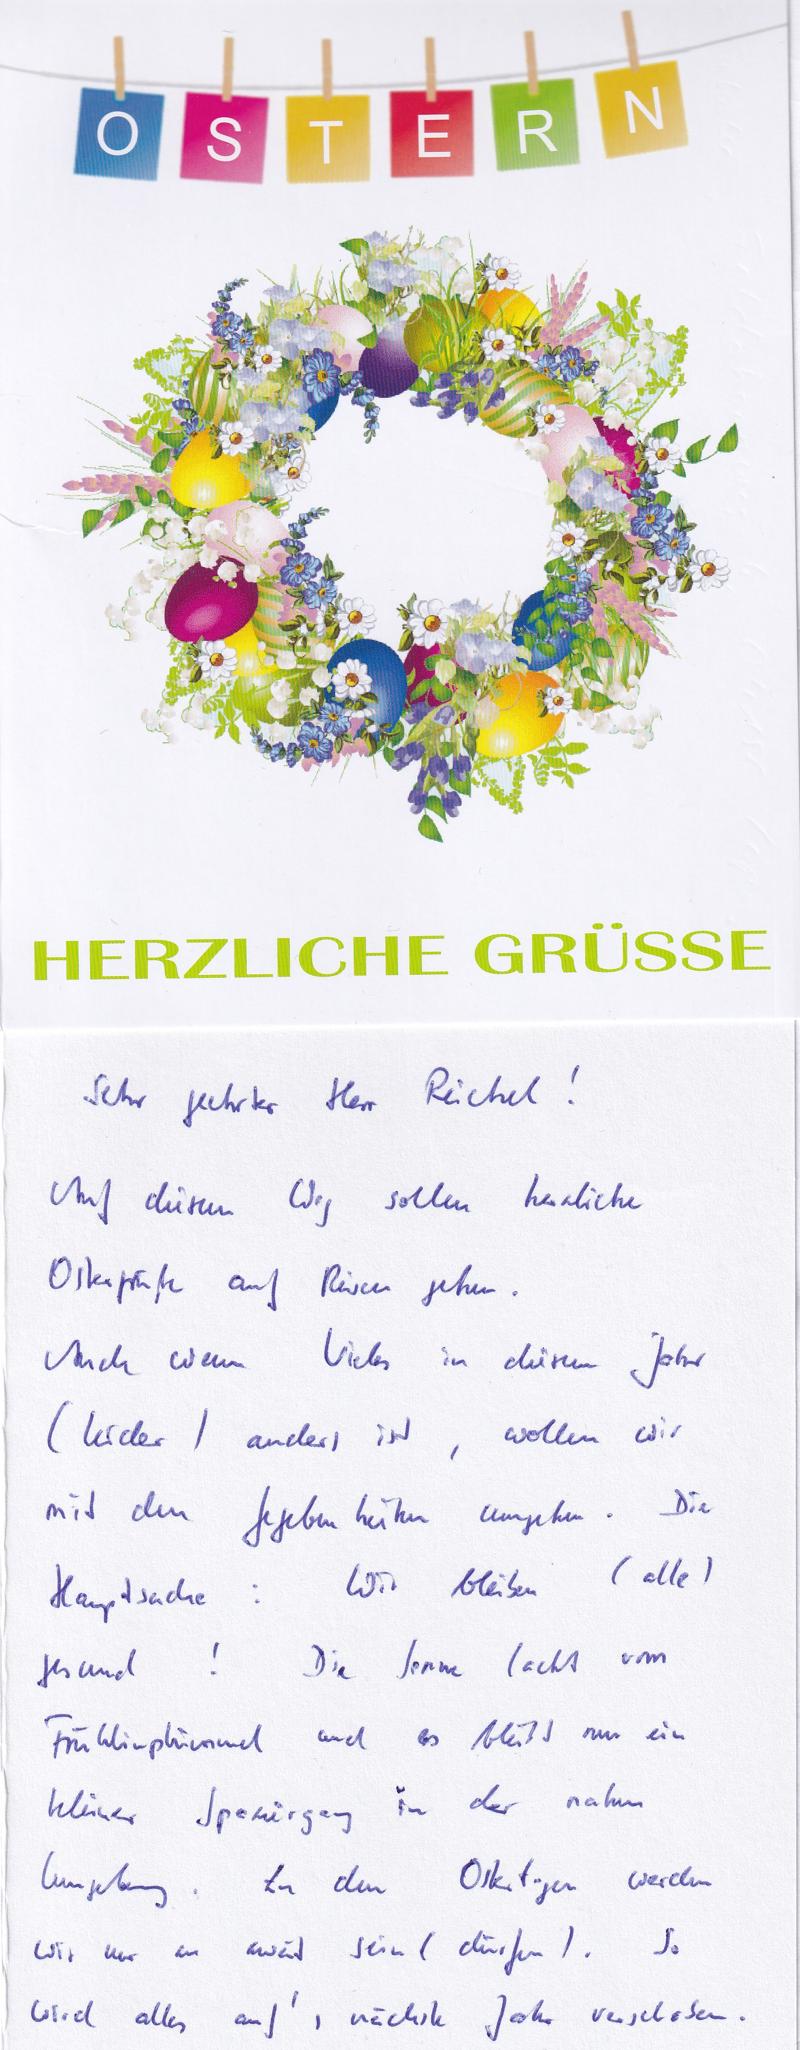 OSTERN
HERZLICHE GRÜSSE
Sehr geehrter Herr Reichel !
Auf diesem Weg sollen herzliche
Ostergrüße auf Reisen gehen.
Auch wenn Vieles in diesem Jahr
(leider) anders ist, wollen wir
mit den Gegebenheiten umgehen. Die
Hauptsache : Wir bleiben (alle)
gesund ! Die Sonne lacht vom
Frühlingshimmel und es bleibt nur ein
kleiner Spaziergang in der nahen
Umgebung. Zu den Ostertagen werden
wir nur zu zweit sein (dürfen). So
wird alles auf's nächste Jahr verschoben.